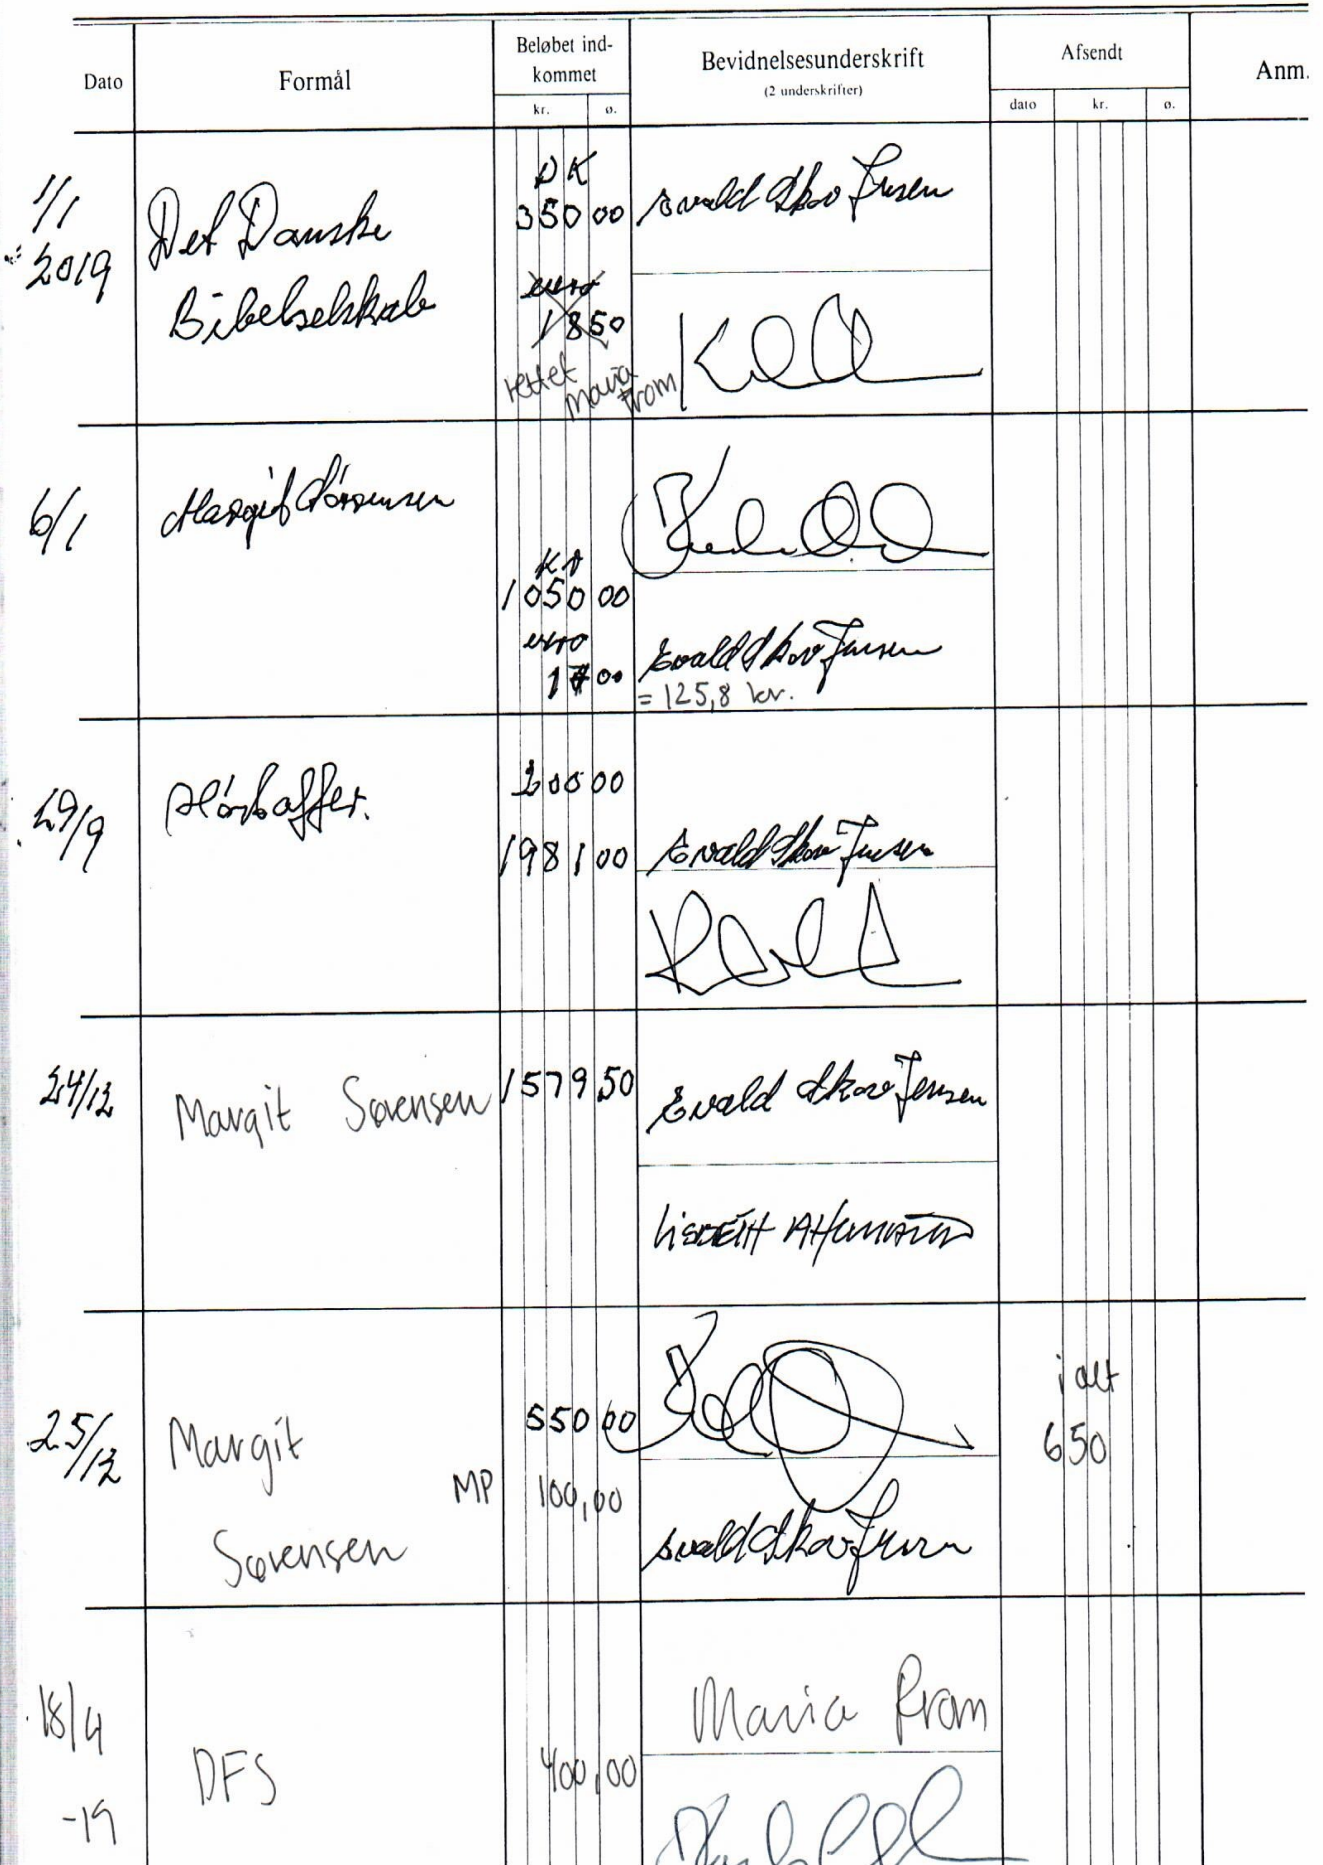 Dato
Formål
Beløbet ind-
kommet
kr. ø.
Bevidnelsesunderskrift
(2 underskrifter)
Afsendt
dato kr. ø.
Anm.
1/1
2019
Det Danske
Bibelselskab
DK
350 00
euro
1850
rettet
Maria
From
Evald Skov Jensen
6/1
Margit Sørensen
KR
1050 00
euro
17 00
Evald Skov Jensen
= 125,8 kr.
29/9
Høstoffer.
200 00
1981 00
Evald Skov Jensen
24/12
Margit Sørensen
1579 50
Evald Skov Jensen
LISBETH
25/12
Margit
Sørensen
550 00
MP 100,00
Evald Skov Jensen
i alt
650
18/4
-19
DFS
400,00
Maria From